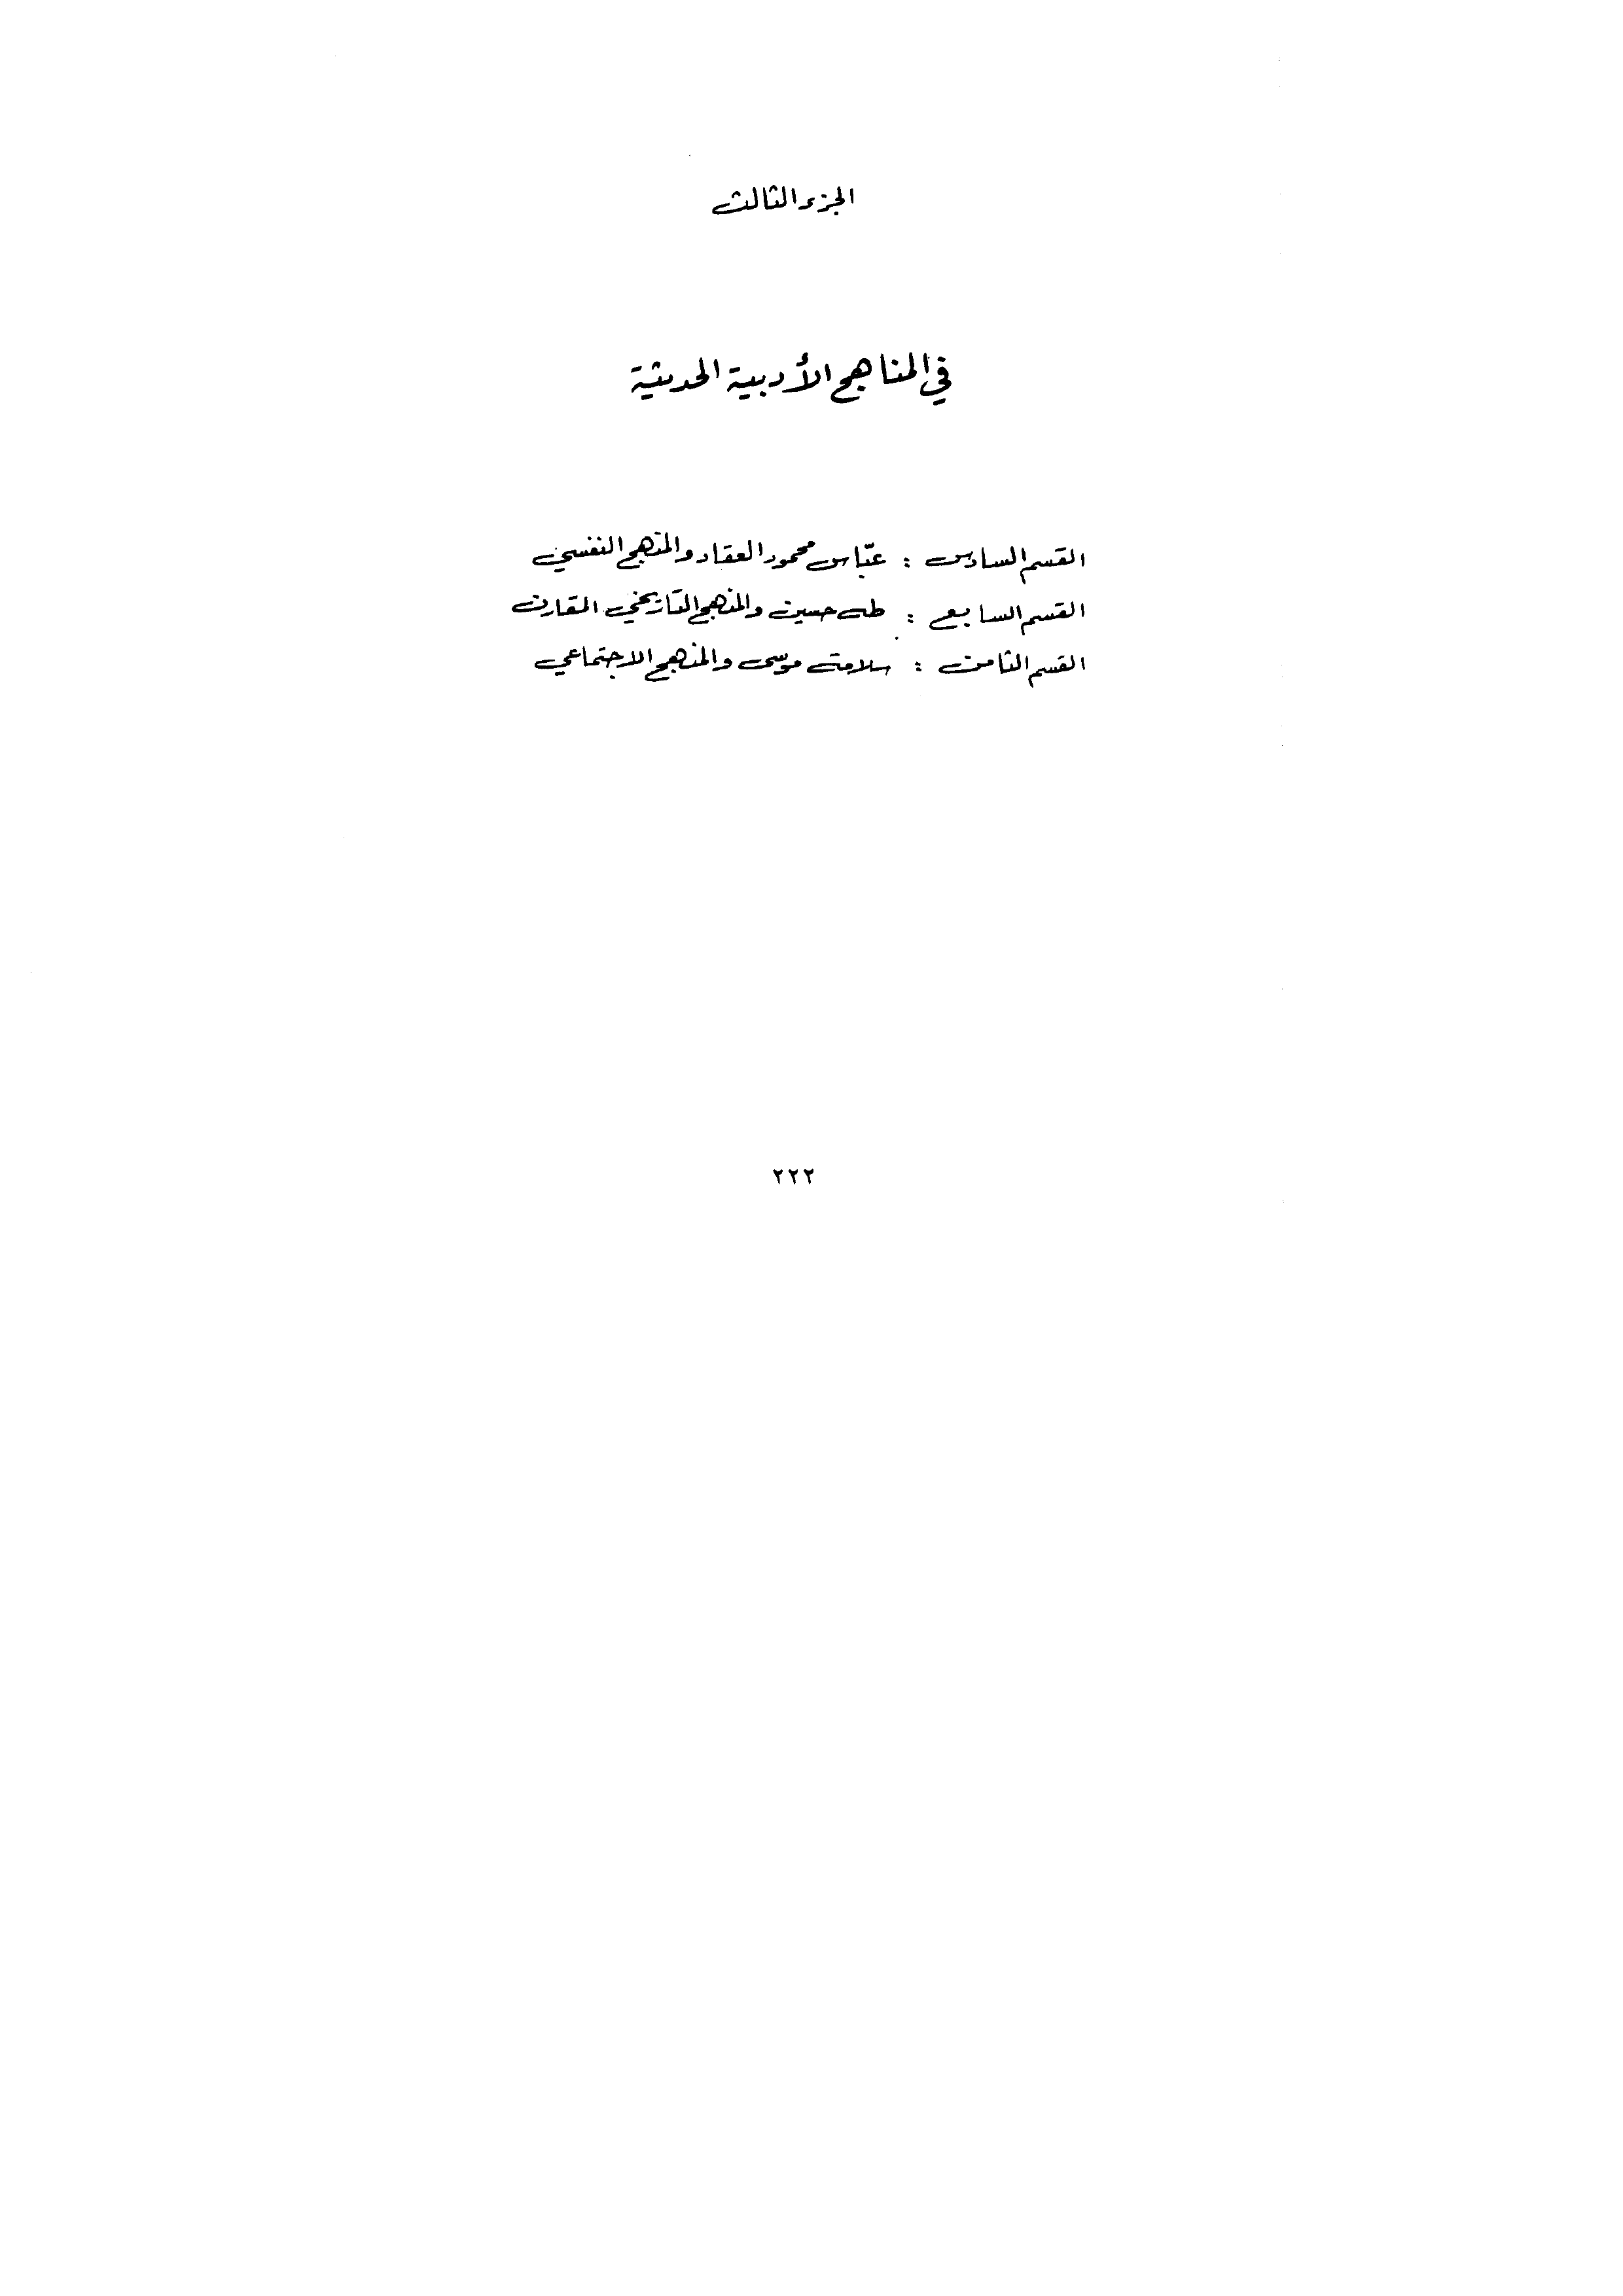 الجزء الثالث
في المناهج الأدبية الحديثة
القسم السادس : عبّاس محمود العقاد والمنهج النفسي
القسم السابع : طه حسين والمنهج التاريخي المقارن
القسم الثامن : سلامة موسى والمنهج الاجتماعي
٢٢٢